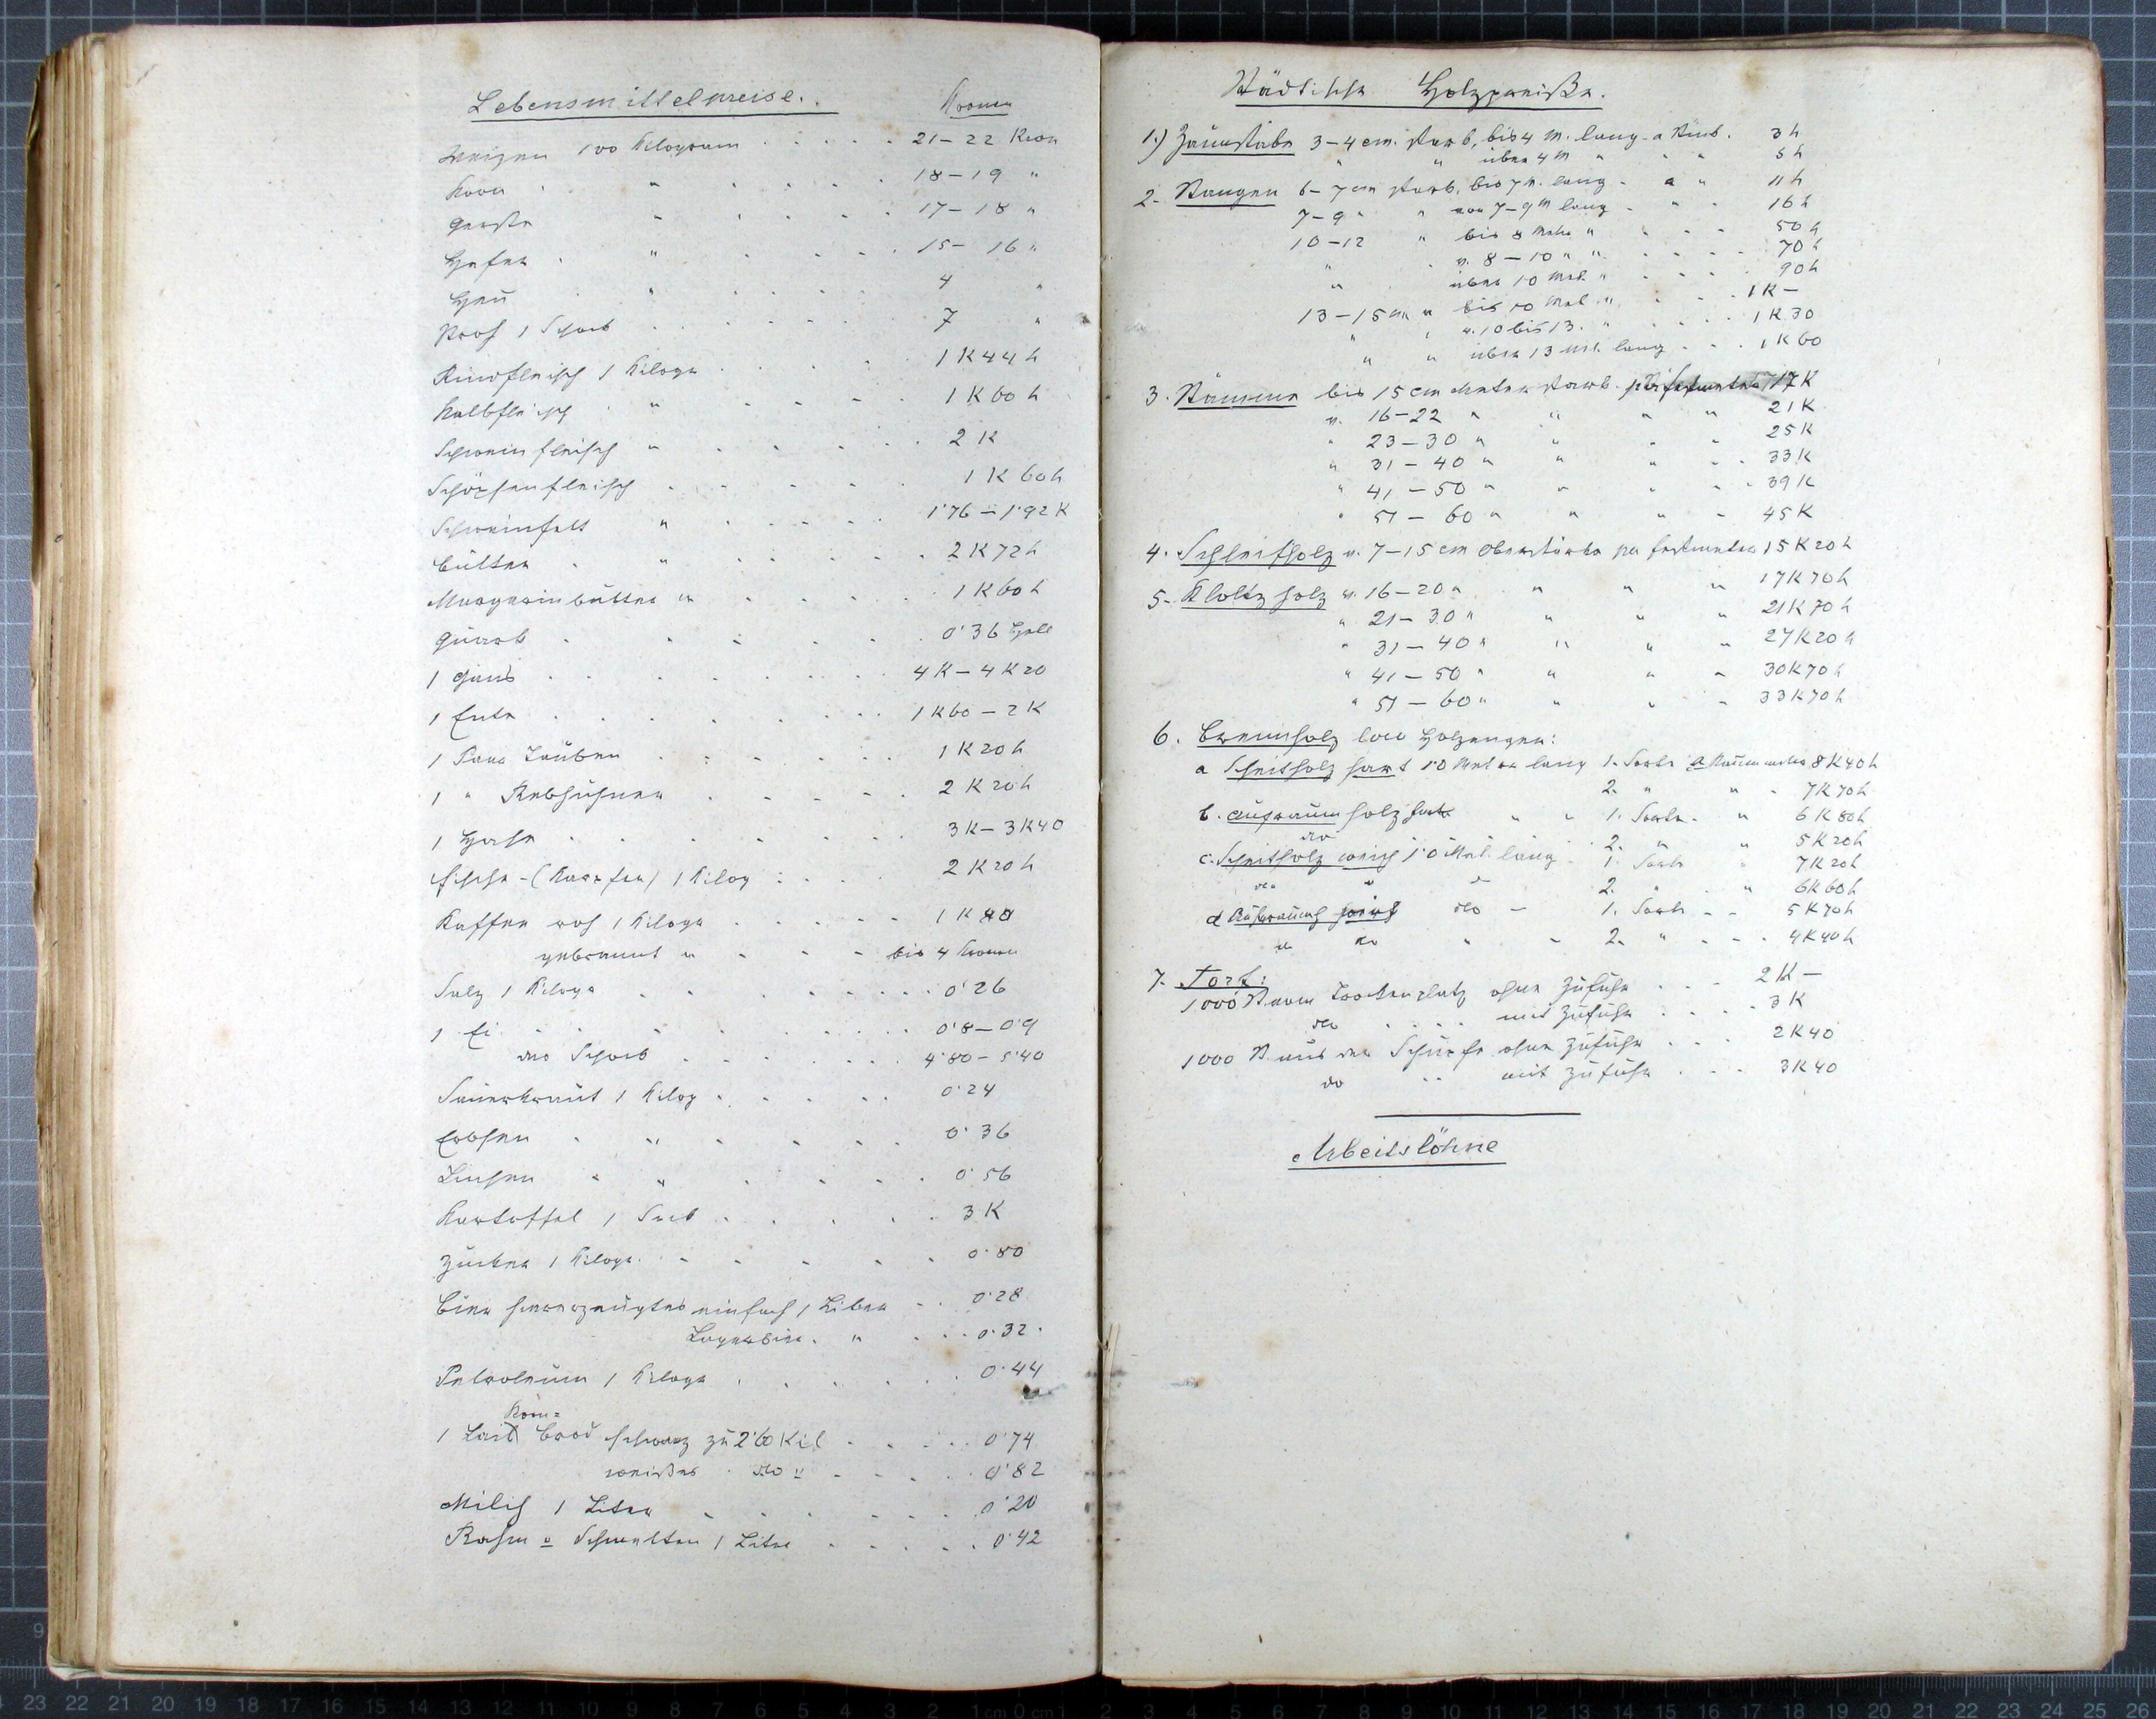 Lebensmittelpreise.
Kronen
Weizen 100 Kilogram . . . . 21-22 Kron
Korn . " . . . . 18-19 "
Gerste " . . . . 17-18 "
Hafer . " . . . 15-16 "
Heu . " . . . . 4 "
Stroh 1 Schock . . . . . 7 "
Rindfleisch 1 Kilogr . . . . 1 K 44 h
Kalbfleisch . " . . . . 1 K 60 h
Schweinfleisch " . . . . 2 K
Schöpsenfleisch . . . . . 1 K 60 h
Schweinfett " . . . . 1'76-1'92 K
Butter . " . . . . 2 K 72 h
Margarinbutter " . . . . 1 K 60 h
Quark . " . . . 0'36 Hell
1 Gans . . . . . . . 4 K-4 K 20
1 Ente . . . . . . . 1 K 60-2 K
1 Paar Tauben . . . . . 1 K 20 h
1 " Rebhühner . . . . . 2 K 20 h
1 Hase . . . . . . . 3 K-3 K 40
Fische-(Karpfen) 1 Kilog . . . . 2 K 20 h
Kaffee roh 1 Kilogr . . . . . 1 K 80
gebrannt " . . . - bis 4 Kronen
Salz 1 Kilogr . . . . . . 0'26
1 Ei . . . . . . . . 0'8-0'9
das Schock . . . . . 4'80-5'40
Sauerkraut 1 Kilog . . . . . 0'24
Erbsen . " . . . . 0'36
Linsen . " . . . . 0'56
Kartoffel 1 Sack . . . . . 3 K
Zucker 1 Kilogr. . . . . . 0'80
Bier hererzeugtes einfach 1 Liter . . 0'28
Lagerbier . " . . . 0'32.
Petroleum 1 Kilogr . . . . . . 0'44
Korn=
1 Laib Brod schwarz zu 2'60 Kil . . . . 0'74
weißes . dto " . . . . . 0'82
Milch 1 Liter . . . . . . 0'20
Rahm = Schmetten 1 Liter . . . . . 0'42
Städtische Holzpreiße.
1.) Zaunstäbe 3-4 cm. stark, bis 4 m. lang - a Stück. 3 h
" " über 4 m " . " 5 h
2. Stangen 6-7 cm stark, bis 7 m. lang - a " 11 h
7-9 " " von 7-9 m lang - " . 16 h
10-12 " bis 8 Meter " . . . 50 h
" . v. 8-10 " " . . . . 70 h
" über 10 Met. " . . . . 90 h
13-15 cm " bis 10 Met. " . . . 1 K -
" " v. 10 bis 13. " . . . . 1 K 30
" " über 13 Met. lang . . . 1 K 60
3. Stämme bis 15 cm Mitten stark. 17 K
v. 16-22 " " " " 21 K
" 23-30 " " " " 25 K
" 31-40 " " " " 33 K
" 41-50 " " " " 39 K
" 51-60 " " " " 45 K
4. Schleifholz v. 7-15 cm Oberstärke per Festmeter 15 K 20 h
5. Klotzholz v. 16-20 " " " " 17 K 70 h
" 21-30 " " " " 21 K 70 h
" 31-40 " " " " 27 K 20 h
" 41-50 " " " " 30 K 70 h
" 51-60 " " " " 33 K 70 h
6. Brennholz loco Holzanger:
a Scheitholz hart 1'0 Meter lang 1. Sorte a Raummeter 8 K 40 h
2. " " . 7 K 70 h
b. Ausraumholz hart " " 1. Sorte . " 6 K 80 h
dto 2. " " 5 K 20 h
c. Scheitholz weich 1'0 Met. lang . 1. Sorte " 7 K 20 h
dto " " 2. " . " 6 K 60 h
d Ausraum weich dto - 1. Sorte - - 5 K 70 h
do do " - 2. " - - . 4 K 40 h
7. Torf:
1000 St vom Trockenplatz ohne Zufuhr . . . 2 K -
dto . . . . mit Zufuhr . . . . 3 K
1000 St aus der Schupfe ohne Zufuhr . . . 2 K 40
do . . mit Zufuhr . . . 3 K 40
Arbeitslöhne